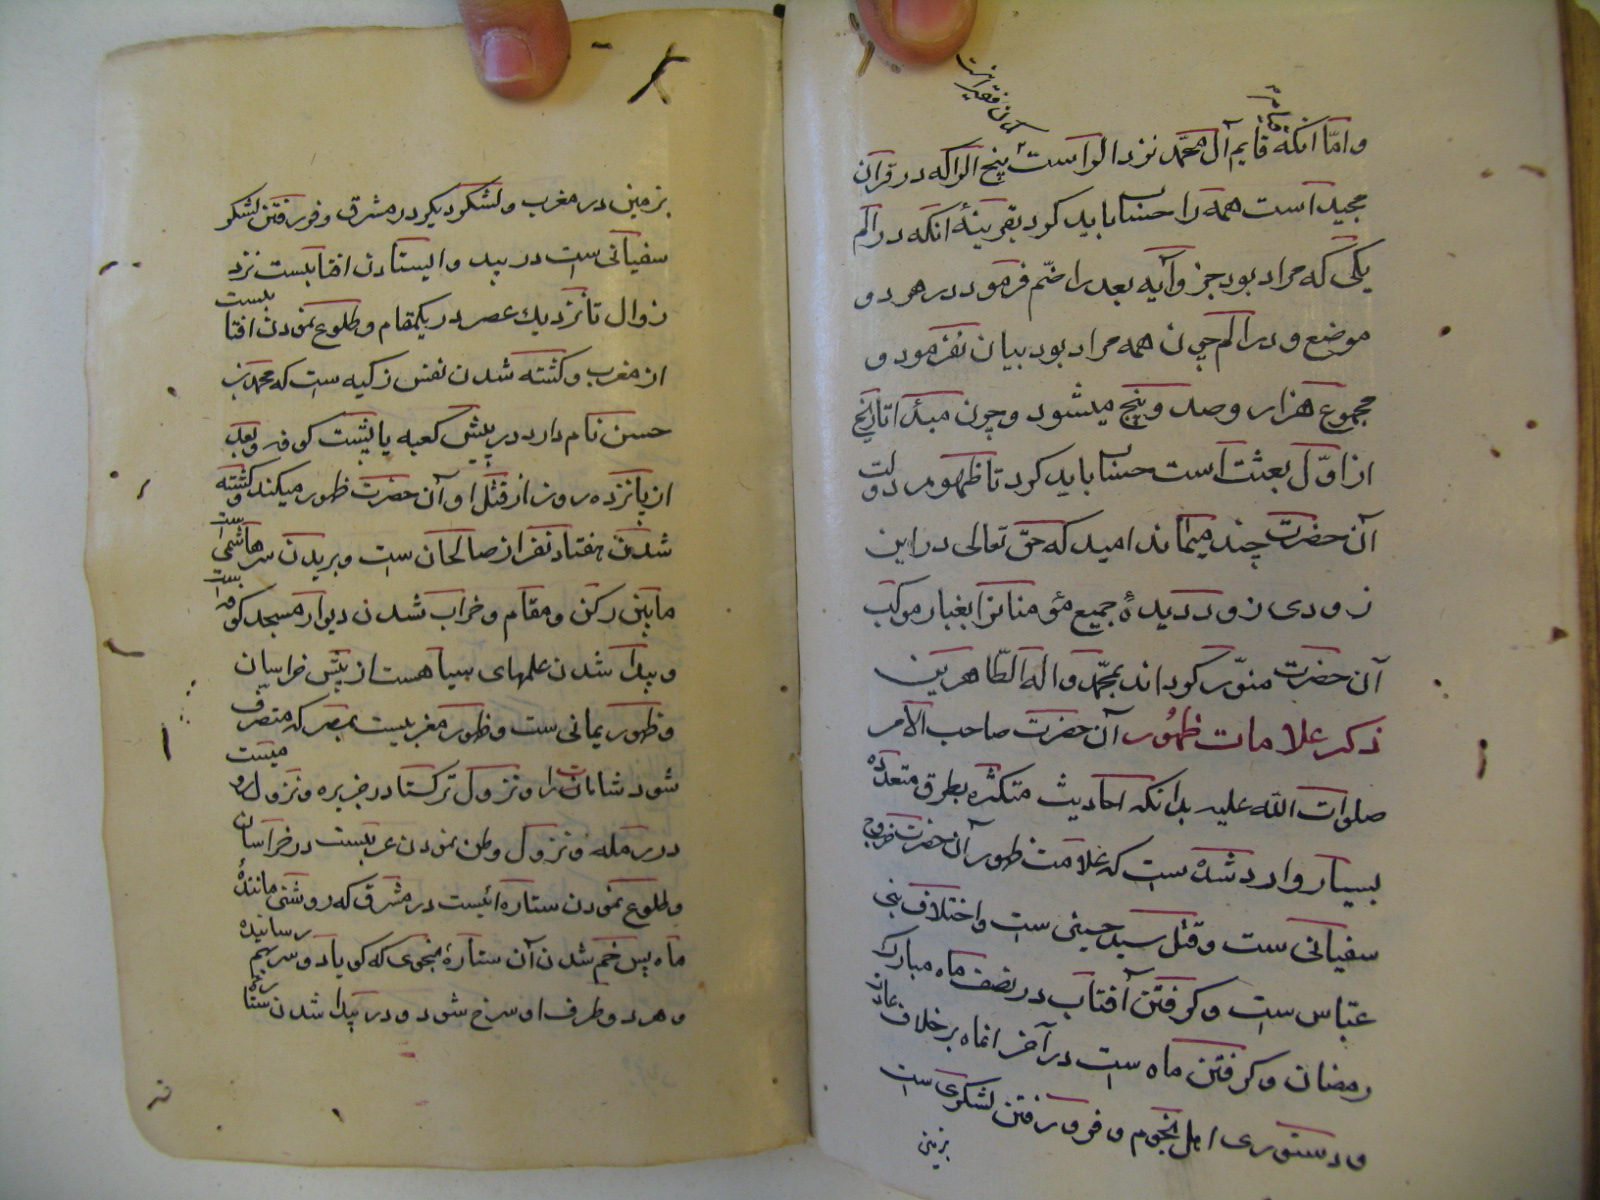 کمان فقیر اینست
قیام
و امّا آنکه قایم آل محمّد نزد الر است پنج الر که در قرآن
مجید است همه را حساب باید کرد بقرینهٔ آنکه در الم
یکی که مراد بود جز و آیه بعد را ضم فرمود در هر دو
موضع و در الم چون همه مراد بود بیان نفرمود و
مجموع هزار و صد و پنج میشود و چون مبدأ تاریخ
از اوّل بعثت است حساب باید کرد تا ظهور دولت
آن حضرت چند میماند امید که حقّ تعالی در این
زودی زود دیدهٔ جمیع مؤمنانرا بغبار موکب
آن حضرت منوّر کرداند بمحمّد و اله الطّاهرین
ذکر علامات ظهور آن حضرت صاحب الامر
صلوات الله علیه بدانکه احادیث متکثره بطرق متعدّده
بسیار وارد شده است که علامت ظهور آن حضرت خروج
سفیانی ست و قتل سید حسنی ست و اختلاف بنی
عبّاس ست و کرفتن آفتاب در نصف ماه مبارک
رمضان و کرفتن ماه ست در آخر انماه بر خلاف عادت
و دستوری اهل نجوم و فرو رفتن لشکری ست
بزمین
بزمین در مغرب و لشکر دیکر در مشرق و فرو رفتن لشکر
سفیانی ست در بید و ایستادن افتابست نزد
زوال تا نزدیک عصر در یکمقام و طلوع نمودن افتابست
از مغرب و کشته شدن نفس زکیه ست که محمد بن
حسن نام دارد در پیش کعبه یا پشت کوفه و بعد
از پانزده روز از قتل او آن حضرت ظهور میکند و کشته
شدن هفتاد نفر از صالحان ست و بریدن سر هاشمی ست
مابین رکن و مقام و خراب شدن دیوار مسجد کوفه است
و پیدا شدن علمهای سیاهست از پیش خراسان
و ظهور یمانی ست و ظهور مغربیست بمصر که متصرف
شود شامات را و نزول ترکست در جزیره و نزول رومیست
در رمله و نزول وطن نمودن عربیست در خراسان
و طلوع نمودن ستاره ایست در مشرق که روشنی مانندهٔ
ماه پس خم شدن آن ستاره بنحوی که کویا دو سر بهم رسانیده
و هر دو طرف او سرخ شود و در پیدا شدن ستاره